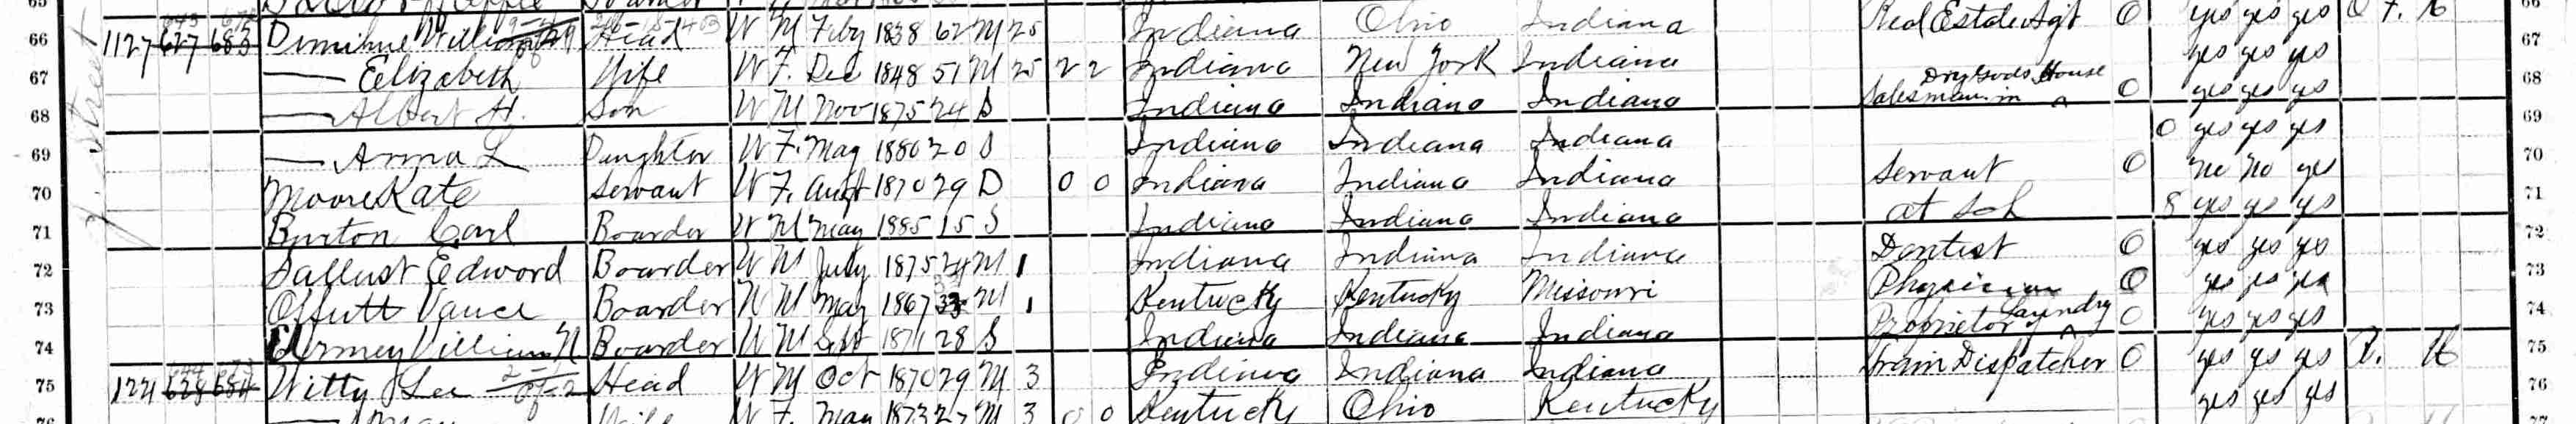 66 1127 627 683 Head W M Feby 1838 62 M 25 Indiana Ohio Indiana Real Estate Agt 0 yes yes yes O F. H 66
67 — Elizabeth Wife W F. Dec 1848 51 M 25 2 2 Indiana New York Indiana yes yes yes 67
68 — Albert H. Son W M Nov 1875 24 S Indiana Indiana Indiana Salesman in Dry Goods House 0 yes yes yes 68
69 — Anna L Daughter W F. May 1880 20 S Indiana Indiana Indiana 0 yes yes yes 69
70 Moore Kate Servant W F. Augt 1870 29 D 0 0 Indiana Indiana Indiana Servant 0 no no yes 70
71 Burton Carl Boarder W M May 1885 15 S Indiana Indiana Indiana at Sch 8 yes yes yes 71
72 Sallust Edword Boarder W M July 1875 24 M 1 Indiana Indiana Indiana Dentist 0 yes yes yes 72
73 Offutt Vance Boarder W M May 1867 33 M 1 Kentucky Kentucky Missouri Physician 0 yes yes yes 73
74 William N Boarder W M Sept 1871 28 S Indiana Indiana Indiana Proprietor of Laundry 0 yes yes yes 74
75 1221 628 684 Witty Lee Head W M Oct 1870 29 M 3 Indiana Indiana Indiana Train Dispatcher 0 yes yes yes R. H 75
76 Wife W F. May 1873 27 M 3 0 0 Kentucky Ohio Kentucky yes yes yes 76